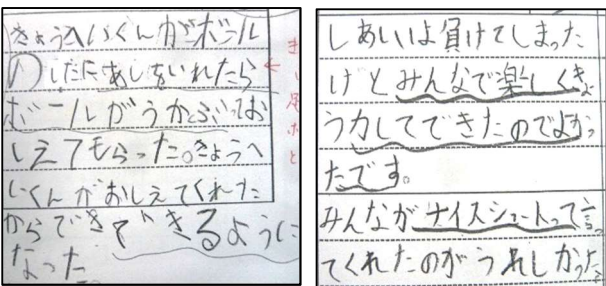 きょうへいくんがボール
のしたにあしをいれたら
ボールがうかぶっお
しえてもらった。きょうへ
いくんがおしえてくれた
からできできるように
なった
しあいは負けてしまった
けどみんなで楽しくきょ
う力してできたのでよかっ
たです。
みんながナイスシュートって言っ
てくれたのがうれしかった